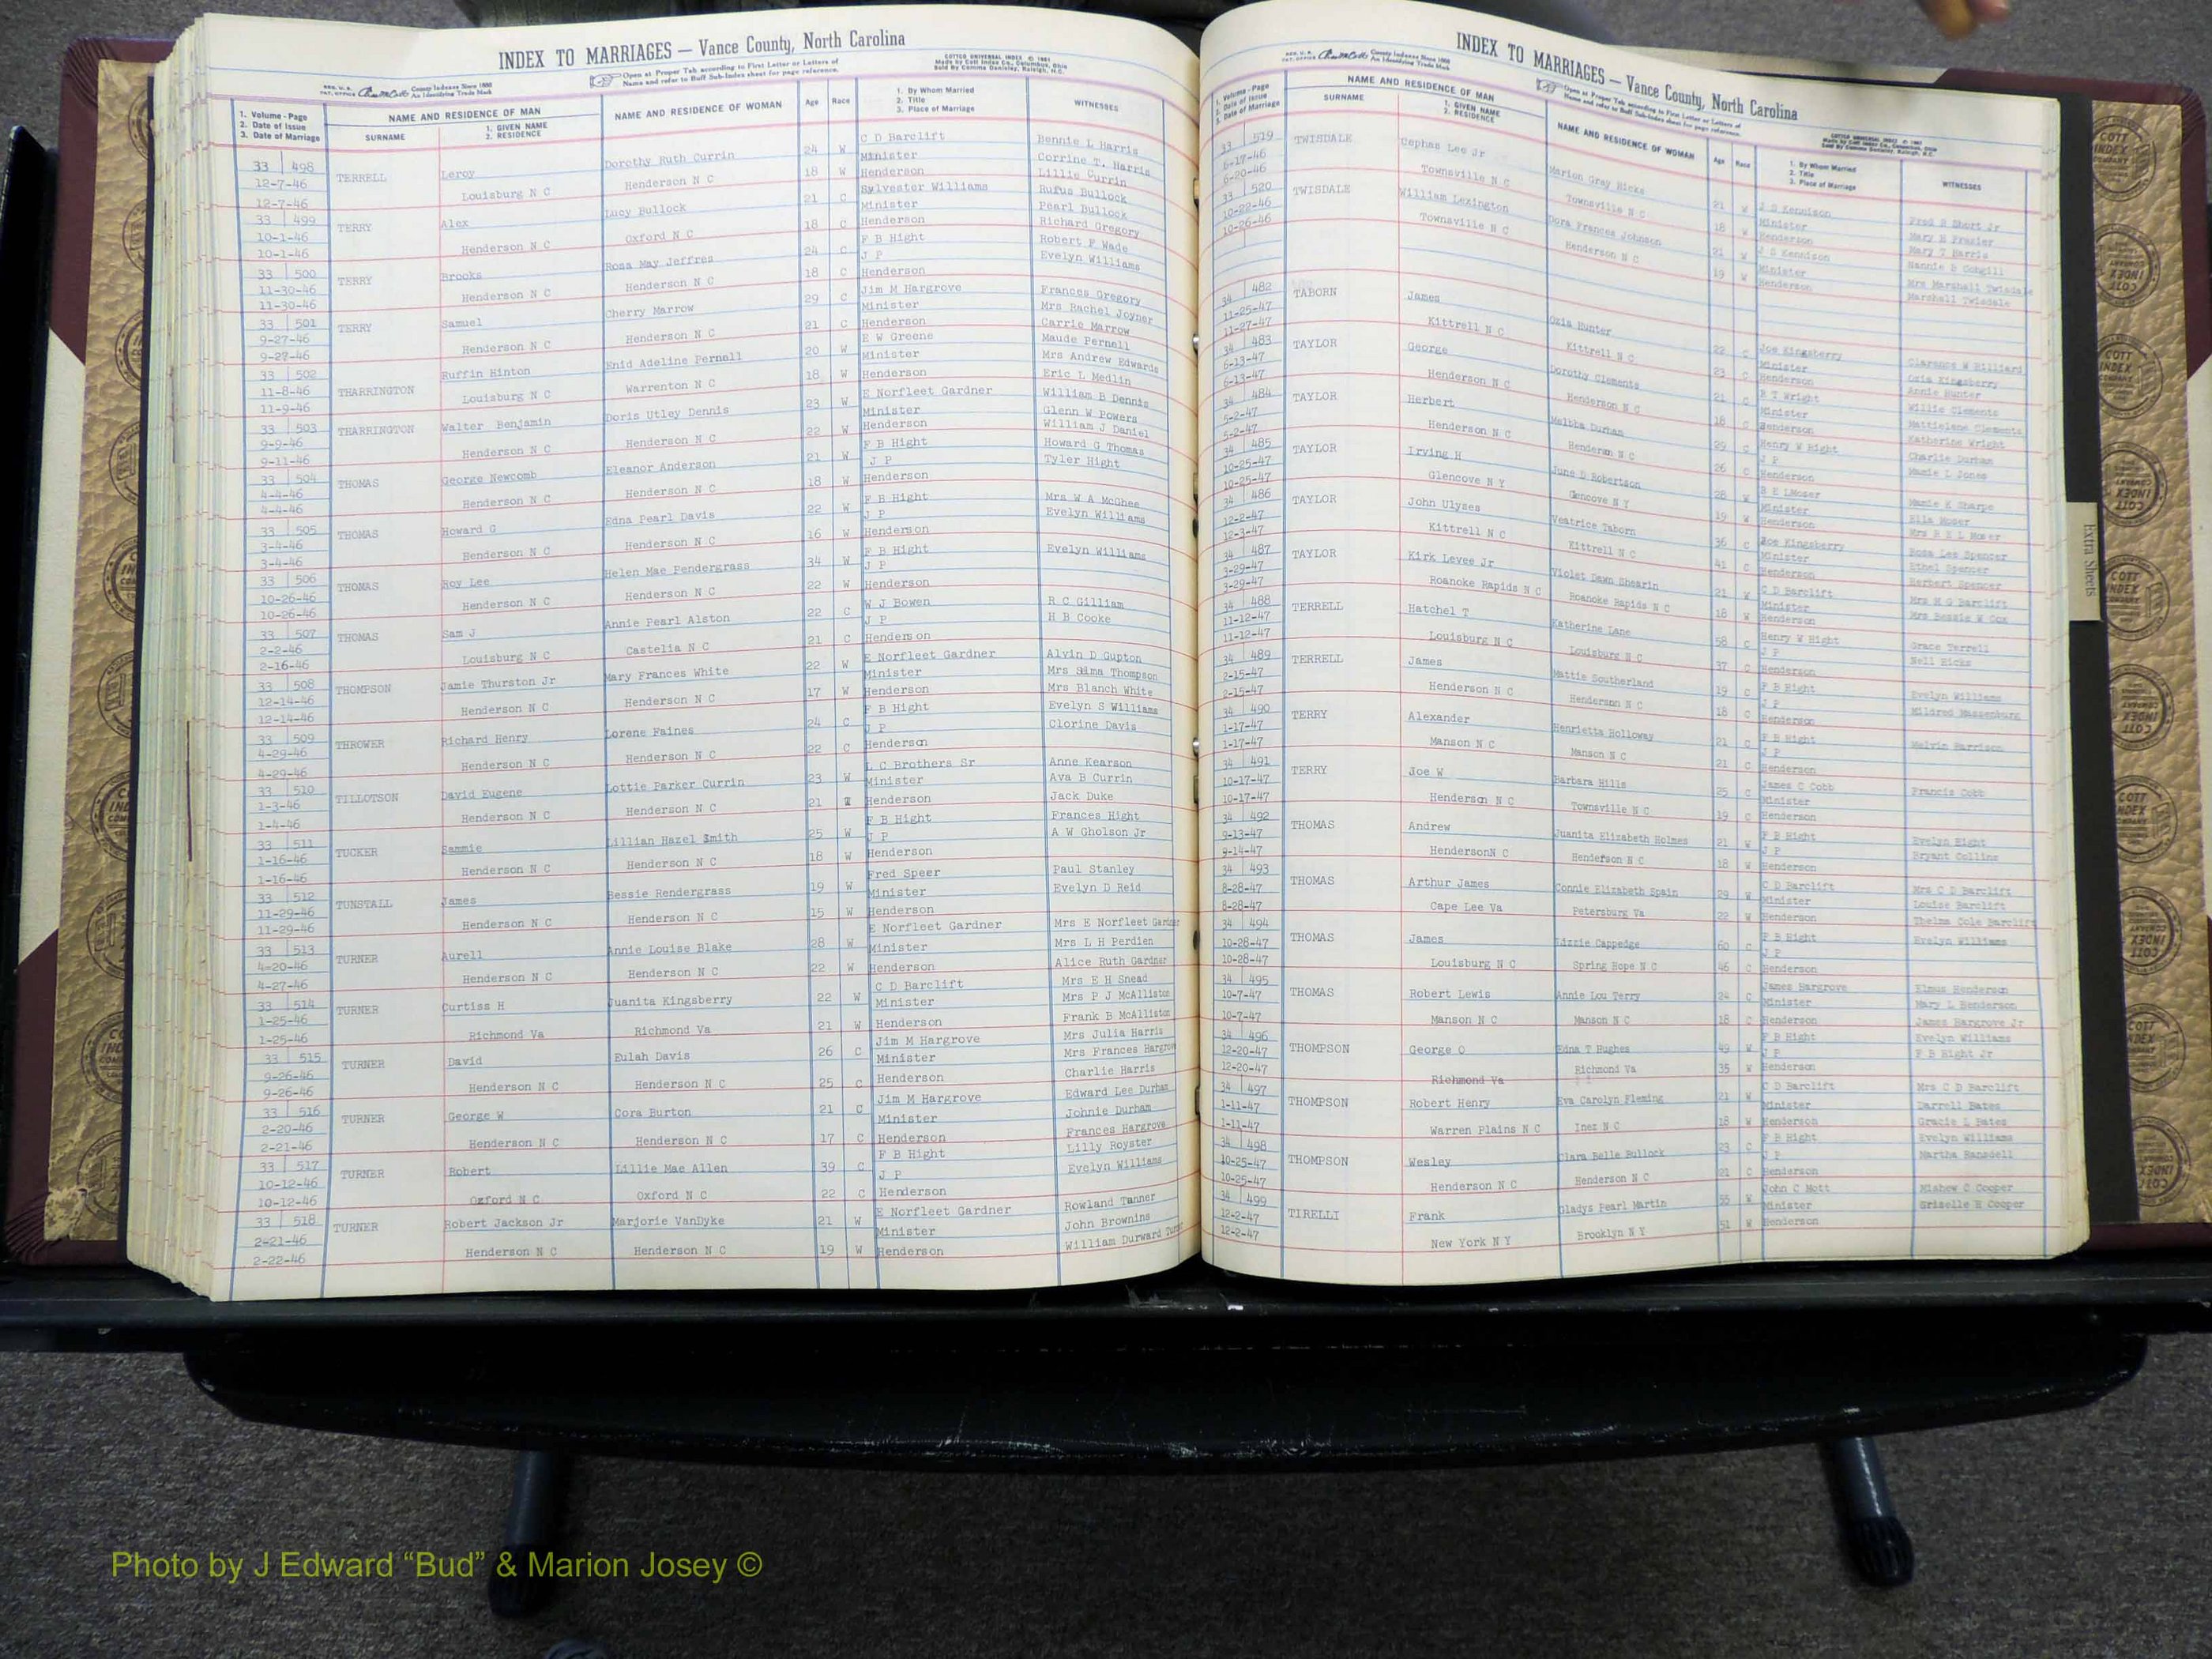 INDEX TO MARRIAGES — Vance County, North Carolina
Open at Proper Tab according to First Letter or Letters of
Name and refer to Buff Sub-Index sheet for page reference.
1. Volume - Page
2. Date of Issue
3. Date of Marriage
NAME AND RESIDENCE OF MAN
SURNAME
1. GIVEN NAME
2. RESIDENCE
NAME AND RESIDENCE OF WOMAN
Age
Race
1. By Whom Married
2. Title
3. Place of Marriage
WITNESSES
33 498 TERRELL Leroy Dorothy Ruth Currin 24 W C D Barclift Bennie L Harris
12-7-46 Louisburg N C Henderson N C 18 W Minister Corrine T. Harris
12-7-46 Henderson Lillie Currin
33 499 TERRY Alex Lucy Bullock 21 C Sylvester Williams Rufus Bullock
10-1-46 Henderson N C Oxford N C 18 C Minister Pearl Bullock
10-1-46 Henderson Richard Gregory
33 500 TERRY Brooks Rosa May Jeffres 24 C F B Hight Robert F Wade
11-30-46 Henderson N C Henderson N C 18 C J P Evelyn Williams
11-30-46 Henderson
33 501 TERRY Samuel Cherry Marrow 29 C Jim M Hargrove Frances Gregory
9-27-46 Henderson N C Henderson N C 21 C Minister Mrs Rachel Joyner
9-27-46 Henderson Carrie Marrow
33 502 THARRINGTON Ruffin Hinton Enid Adeline Pernell 20 W E W Greene Maude Pernell
11-8-46 Louisburg N C Warrenton N C 18 W Minister Mrs Andrew Edwards
11-9-46 Henderson Eric L Medlin
33 503 THARRINGTON Walter Benjamin Doris Utley Dennis 23 W E Norfleet Gardner William B Dennis
9-9-46 Henderson N C Henderson N C 22 W Minister Glenn W Powers
9-11-46 Henderson William J Daniel
33 504 THOMAS George Newcomb Eleanor Anderson 21 W F B Hight Howard G Thomas
4-4-46 Henderson N C Henderson N C 18 W J P Tyler Hight
4-4-46 Henderson
33 505 THOMAS Howard G Edna Pearl Davis 22 W F B Hight Mrs W A McGhee
3-4-46 Henderson N C Henderson N C 16 W J P Evelyn Williams
3-4-46 Henderson
33 506 THOMAS Roy Lee Helen Mae Pendergrass 34 W F B Hight Evelyn Williams
10-26-46 Henderson N C Henderson N C 22 W J P
10-26-46 Henderson
33 507 THOMAS Sam J Annie Pearl Alston 22 C W J Bowen R C Gilliam
2-2-46 Louisburg N C Castelia N C 21 C J P H B Cooke
2-16-46 Henderson
33 508 THOMPSON Jamie Thurston Jr Mary Frances White 22 W E Norfleet Gardner Alvin D Gupton
12-14-46 Henderson N C Henderson N C 17 W Minister Mrs Thompson
12-14-46 Henderson Mrs Blanch White
33 509 THROWER Richard Henry Lorene Faines 24 C F B Hight Evelyn S Williams
4-29-46 Henderson N C Henderson N C 22 C J P Clorine Davis
4-29-46 Henderson
33 510 TILLOTSON David Eugene Lottie Parker Currin 23 W L C Brothers Sr Anne Kearson
1-3-46 Henderson N C Henderson N C 21 W Minister Ava B Currin
1-4-46 Henderson Jack Duke
33 511 TUCKER Sammie Lillian Hazel Smith 25 W F B Hight Frances Hight
1-16-46 Henderson N C Henderson N C 18 W J P A W Gholson Jr
1-16-46 Henderson
33 512 TUNSTALL James Bessie Rendergrass 19 W Fred Speer Paul Stanley
11-29-46 Henderson N C Henderson N C 15 W Minister Evelyn D Reid
11-29-46 Henderson
33 513 TURNER Aurell Annie Louise Blake 28 W E Norfleet Gardner Mrs E Norfleet Gardner
4-20-46 Henderson N C Henderson N C 22 W Minister Mrs L H Perdien
4-27-46 Henderson Alice Ruth Gardner
33 514 TURNER Curtiss H Juanita Kingsberry 22 W C D Barclift Mrs E H Snead
1-25-46 Richmond Va Richmond Va 21 W Minister Mrs P J McAllister
1-25-46 Henderson Frank B McAllister
33 515 TURNER David Eulah Davis 26 C Jim M Hargrove Mrs Julia Harris
9-26-46 Henderson N C Henderson N C 25 C Minister Mrs Frances Hargrove
9-26-46 Henderson Charlie Harris
33 516 TURNER George W Cora Burton 21 C Jim M Hargrove Edward Lee Durham
2-20-46 Henderson N C Henderson N C 17 C Minister Johnie Durham
2-21-46 Henderson Frances Hargrove
33 517 TURNER Robert Lillie Mae Allen 39 C F B Hight Lilly Royster
10-12-46 Oxford N C Oxford N C 22 C J P Evelyn Williams
10-12-46 Henderson
33 518 TURNER Robert Jackson Jr Marjorie VanDyke 21 W E Norfleet Gardner Rowland Tanner
2-21-46 Henderson N C Henderson N C 19 W Minister John Brownins
2-22-46 Henderson William Durward
INDEX TO MARRIAGES — Vance County, North Carolina
Open at Proper Tab according to First Letter or Letters of
Name and refer to Buff Sub-Index sheet for page reference.
Volume - Page
Date of Issue
Date of Marriage
NAME AND RESIDENCE OF MAN
SURNAME
1. GIVEN NAME
2. RESIDENCE
NAME AND RESIDENCE OF WOMAN
Age
Race
1. By Whom Married
2. Title
3. Place of Marriage
WITNESSES
33 519 TWISDALE Cephas Lee Jr Marion Gray Hicks 21 W J S Kennison Fred S Short Jr
6-17-46 Townsville N C Townsville N C 18 W Minister Mary H Frazier
6-20-46 Henderson Mary T Harris
33 520 TWISDALE William Lexington Dora Frances Johnson 21 W J S Kennison Nannie S Cohgill
10-22-46 Townsville N C Henderson N C 19 W Minister Mrs Marshall Twisdale
10-26-46 Henderson Marshall Twisdale
34 482 TABORN James Ozia Hunter 22 C Joe Kingsberry Clarence W Hilliard
11-25-47 Kittrell N C Kittrell N C 23 C Minister Ozia Kingsberry
11-27-47 Henderson Annie Hunter
34 483 TAYLOR George Dorothy Clements 21 C R T Wright Willie Clements
6-13-47 Henderson N C Henderson N C 18 C Minister Mattielene Clements
6-13-47 Henderson Katherine Wright
34 484 TAYLOR Herbert Melbba Durham 29 C Henry W Hight Charlie Durham
5-2-47 Henderson N C Henderson N C 26 C J P Mamie L Jones
5-2-47 Henderson
34 485 TAYLOR Irving H June D Robertson 28 W Mamie K Sharpe
10-25-47 Glencove N Y Gencove N Y 19 W Minister Ella Moser
10-25-47 Henderson
34 486 TAYLOR John Ulyses Veatrice Taborn 36 C Joe Kingsberry Rosa Lee Spencer
12-2-47 Kittrell N C Kittrell N C 41 C Minister Ethel Spencer
12-3-47 Henderson Herbert Spencer
34 487 TAYLOR Kirk Levee Jr Violet Dawn Shearin 21 W C D Barclift Mrs H G Barclift
3-29-47 Roanoke Rapids N C Roanoke Rapids N C 18 W Minister Mrs Bessie W Cox
3-29-47 Henderson
34 488 TERRELL Hatchel T Katherine Lane 58 C Henry W Hight Grace Terrell
11-12-47 Louisburg N C Louisburg N C 37 C J P Nell Hicks
11-12-47 Henderson
34 489 TERRELL James Mattie Southerland 19 C F B Hight Evelyn Williams
2-15-47 Henderson N C Henderson N C 18 C J P Mildred Massenburg
2-15-47 Henderson
34 490 TERRY Alexander Henrietta Holloway 21 C F B Hight Melvin Harrison
1-17-47 Manson N C Manson N C 21 C J P
1-17-47 Henderson
34 491 TERRY Joe W Barbara Hills 25 C James C Cobb Francis Cobb
10-17-47 Henderson N C Townsville N C 19 C Minister
10-17-47 Henderson
34 492 THOMAS Andrew Juanita Elizabeth Holmes 21 W F B Hight Evelyn Hight
9-13-47 HendersonN C Henderson N C 18 W J P Bryant Collins
9-14-47 Henderson
34 493 THOMAS Arthur James Connie Elizabeth Spain 29 W C D Barclift Mrs C D Barclift
8-28-47 Cape Lee Va Petersburg Va 22 W Minister Louise Barclift
8-28-47 Henderson Thelma Cole Barclift
34 494 THOMAS James Lizzie Cappedge 60 C F B Hight Evelyn Williams
10-28-47 Louisburg N C Spring Hope N C 46 C J P
10-28-47 Henderson
34 495 THOMAS Robert Lewis Annie Lou Terry 24 C James Hargrove Elmus Henderson
10-7-47 Manson N C Manson N C 18 C Minister Mary L Henderson
10-7-47 Henderson James Hargrove Jr
34 496 THOMPSON George O Edna T Hughes 49 W F B Hight Evelyn Williams
12-20-47 Richmond Va Richmond Va 35 W J P F B Hight Jr
12-20-47 Henderson
34 497 THOMPSON Robert Henry Eva Carolyn Fleming 21 W C D Barclift Mrs C D Barclift
1-11-47 Warren Plains N C Inez N C 18 W Minister Darrell Bates
1-11-47 Henderson Gracie L Bates
34 498 THOMPSON Wesley Clara Belle Bullock 23 C F B Hight Evelyn Williams
10-25-47 Henderson N C Henderson N C 21 C J P Martha Ransdell
10-25-47 Henderson
34 499 TIRELLI Frank Gladys Pearl Martin 55 W John C Mott Mishew C Cooper
12-2-47 New York N Y Brooklyn N Y 51 W Minister Griselle H Cooper
12-2-47 Henderson
Extra Sheets
Photo by J Edward “Bud” & Marion Josey ©